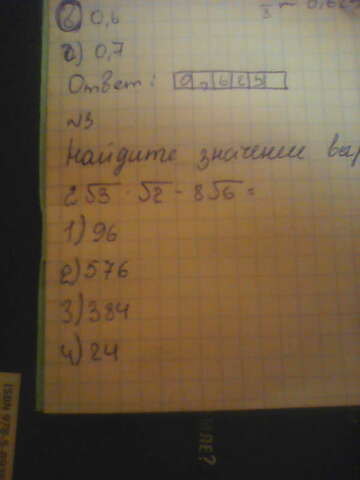 б) 0,6
г) 0,7
Ответ: 0,625
№3
Найдите значении
2√3 · √2 · 8√6 =
1) 96
2) 576
3) 384
4) 24